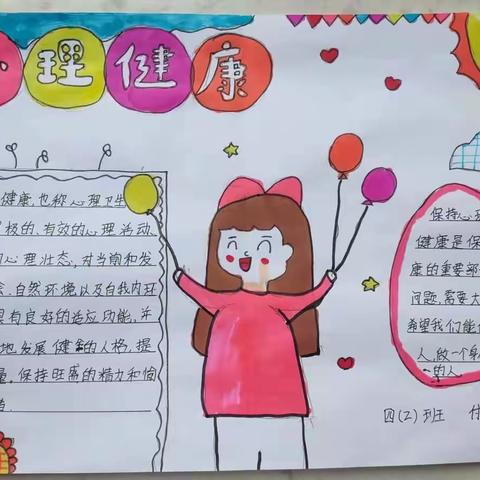 心理健康
健康,也称心理卫生
极的、有效的心理活动
心理状态,对当前和发
、自然环境以及自我内环
具有良好的适应功能,并
地发展健全的人格,提
量,保持旺盛的精力和愉
绪
保持心理
健康是保
康的重要部
问题,需要大
希望我们能
人,做一个身
的人
四(2)班